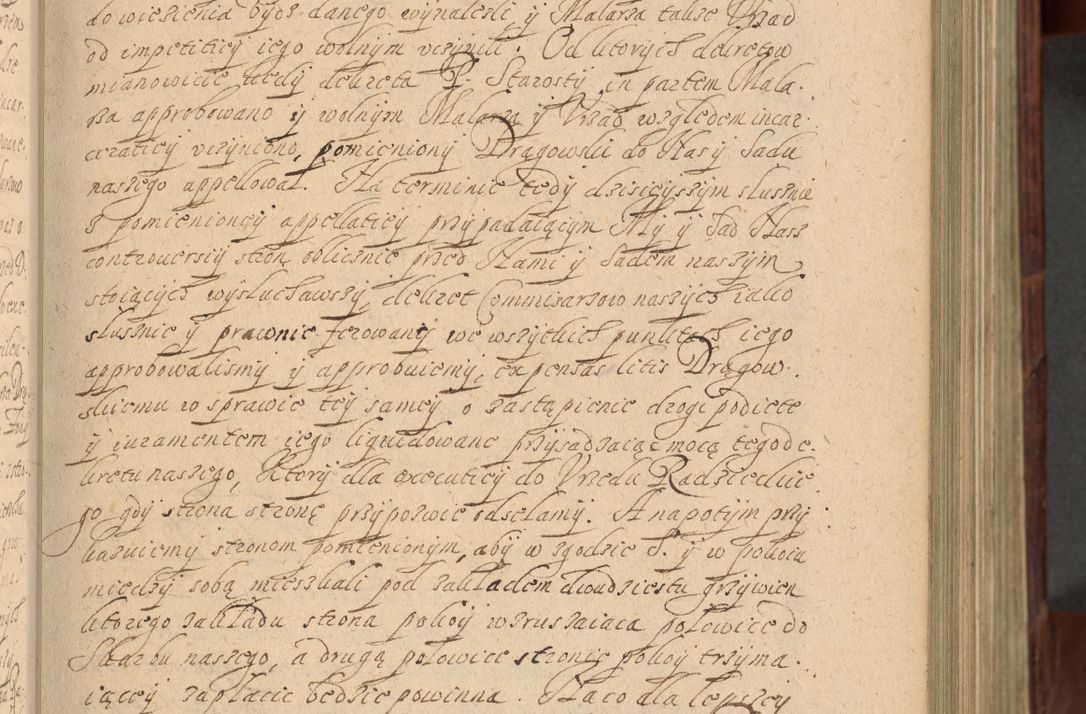 do więzienia bydź danego wynalezli y Malarza także Vrząd
od impetitiey iego wolnym vczynili. Od ktorych dekretow
mianowicie tedy dekreta P. Starosty in partem Mala-
rza approbowano y wolnym Malarza y Vrząd względem incar-
ceratiey vczyniono, pomieniony Drągowski do Nas y Sądu
naszego appellował. Na terminie tedy dzisieyszym słusznie
z pomienioney appellatiey przypadaiącym My y Sąd Nasz
controuersiy stron oblicznie przed Nami y Sądem naszym
stoiących wysłuchawszy, dekret Commissarzow naszych iako
słusznie y prawnie ferowany we wszytkich punktach iego
approbowalismy y approbuiemy, expensas litis Drągow-
skiemu w sprawie tey samey o zastąpienie drogi podięte
y iuramentem iego liquidowane przysądzaiąc mocą tego de-
kretu naszego, Ktory dla executiey do Vrzędu Radzieckie-
go gdy strona stronę przypozwie odsełamy. A napotym przy-
kazuiemy stronom pomienionym, aby w zgodzie S. y w pokoiu
miedzy sobą mieszkali pod zakładem dwudziestu grzywien
ktorego zakładu strona pokoy wzruszaiąca połowice do
Skarbu naszego, a drugą połowice stronie pokoy trzyma-
iącey zapłacić będzie powinna. Na co dla lepszey